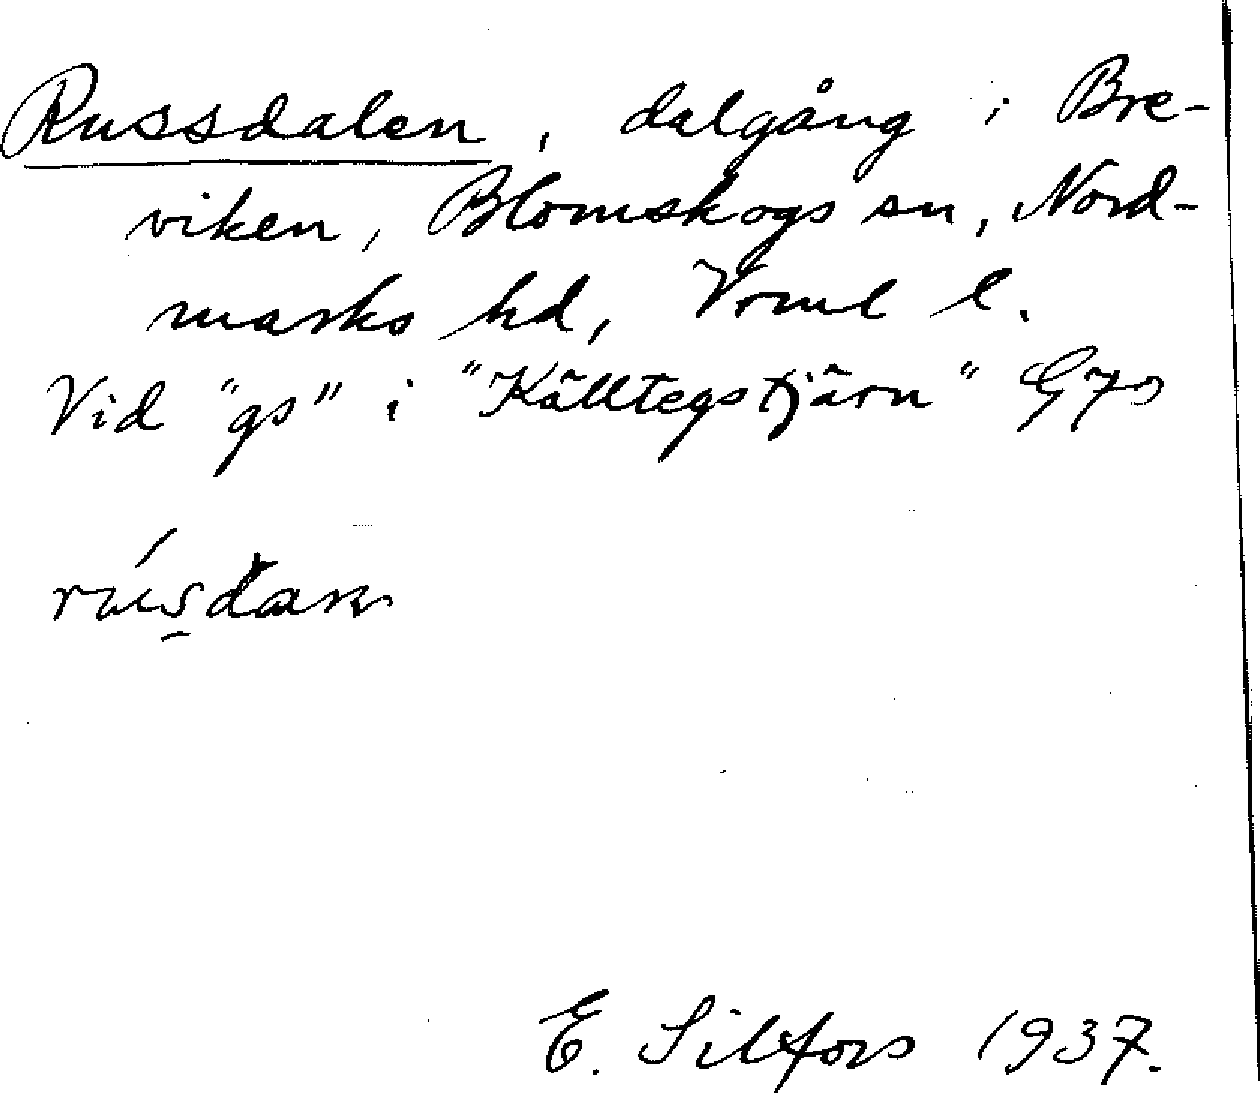 Russdalen, dalgång i Bre-
viken, Blomskogs sn, Nord-
marks hd, Vrml l.
Vid "gs" i "Källtegstjärn"
E. Silfors 1937.